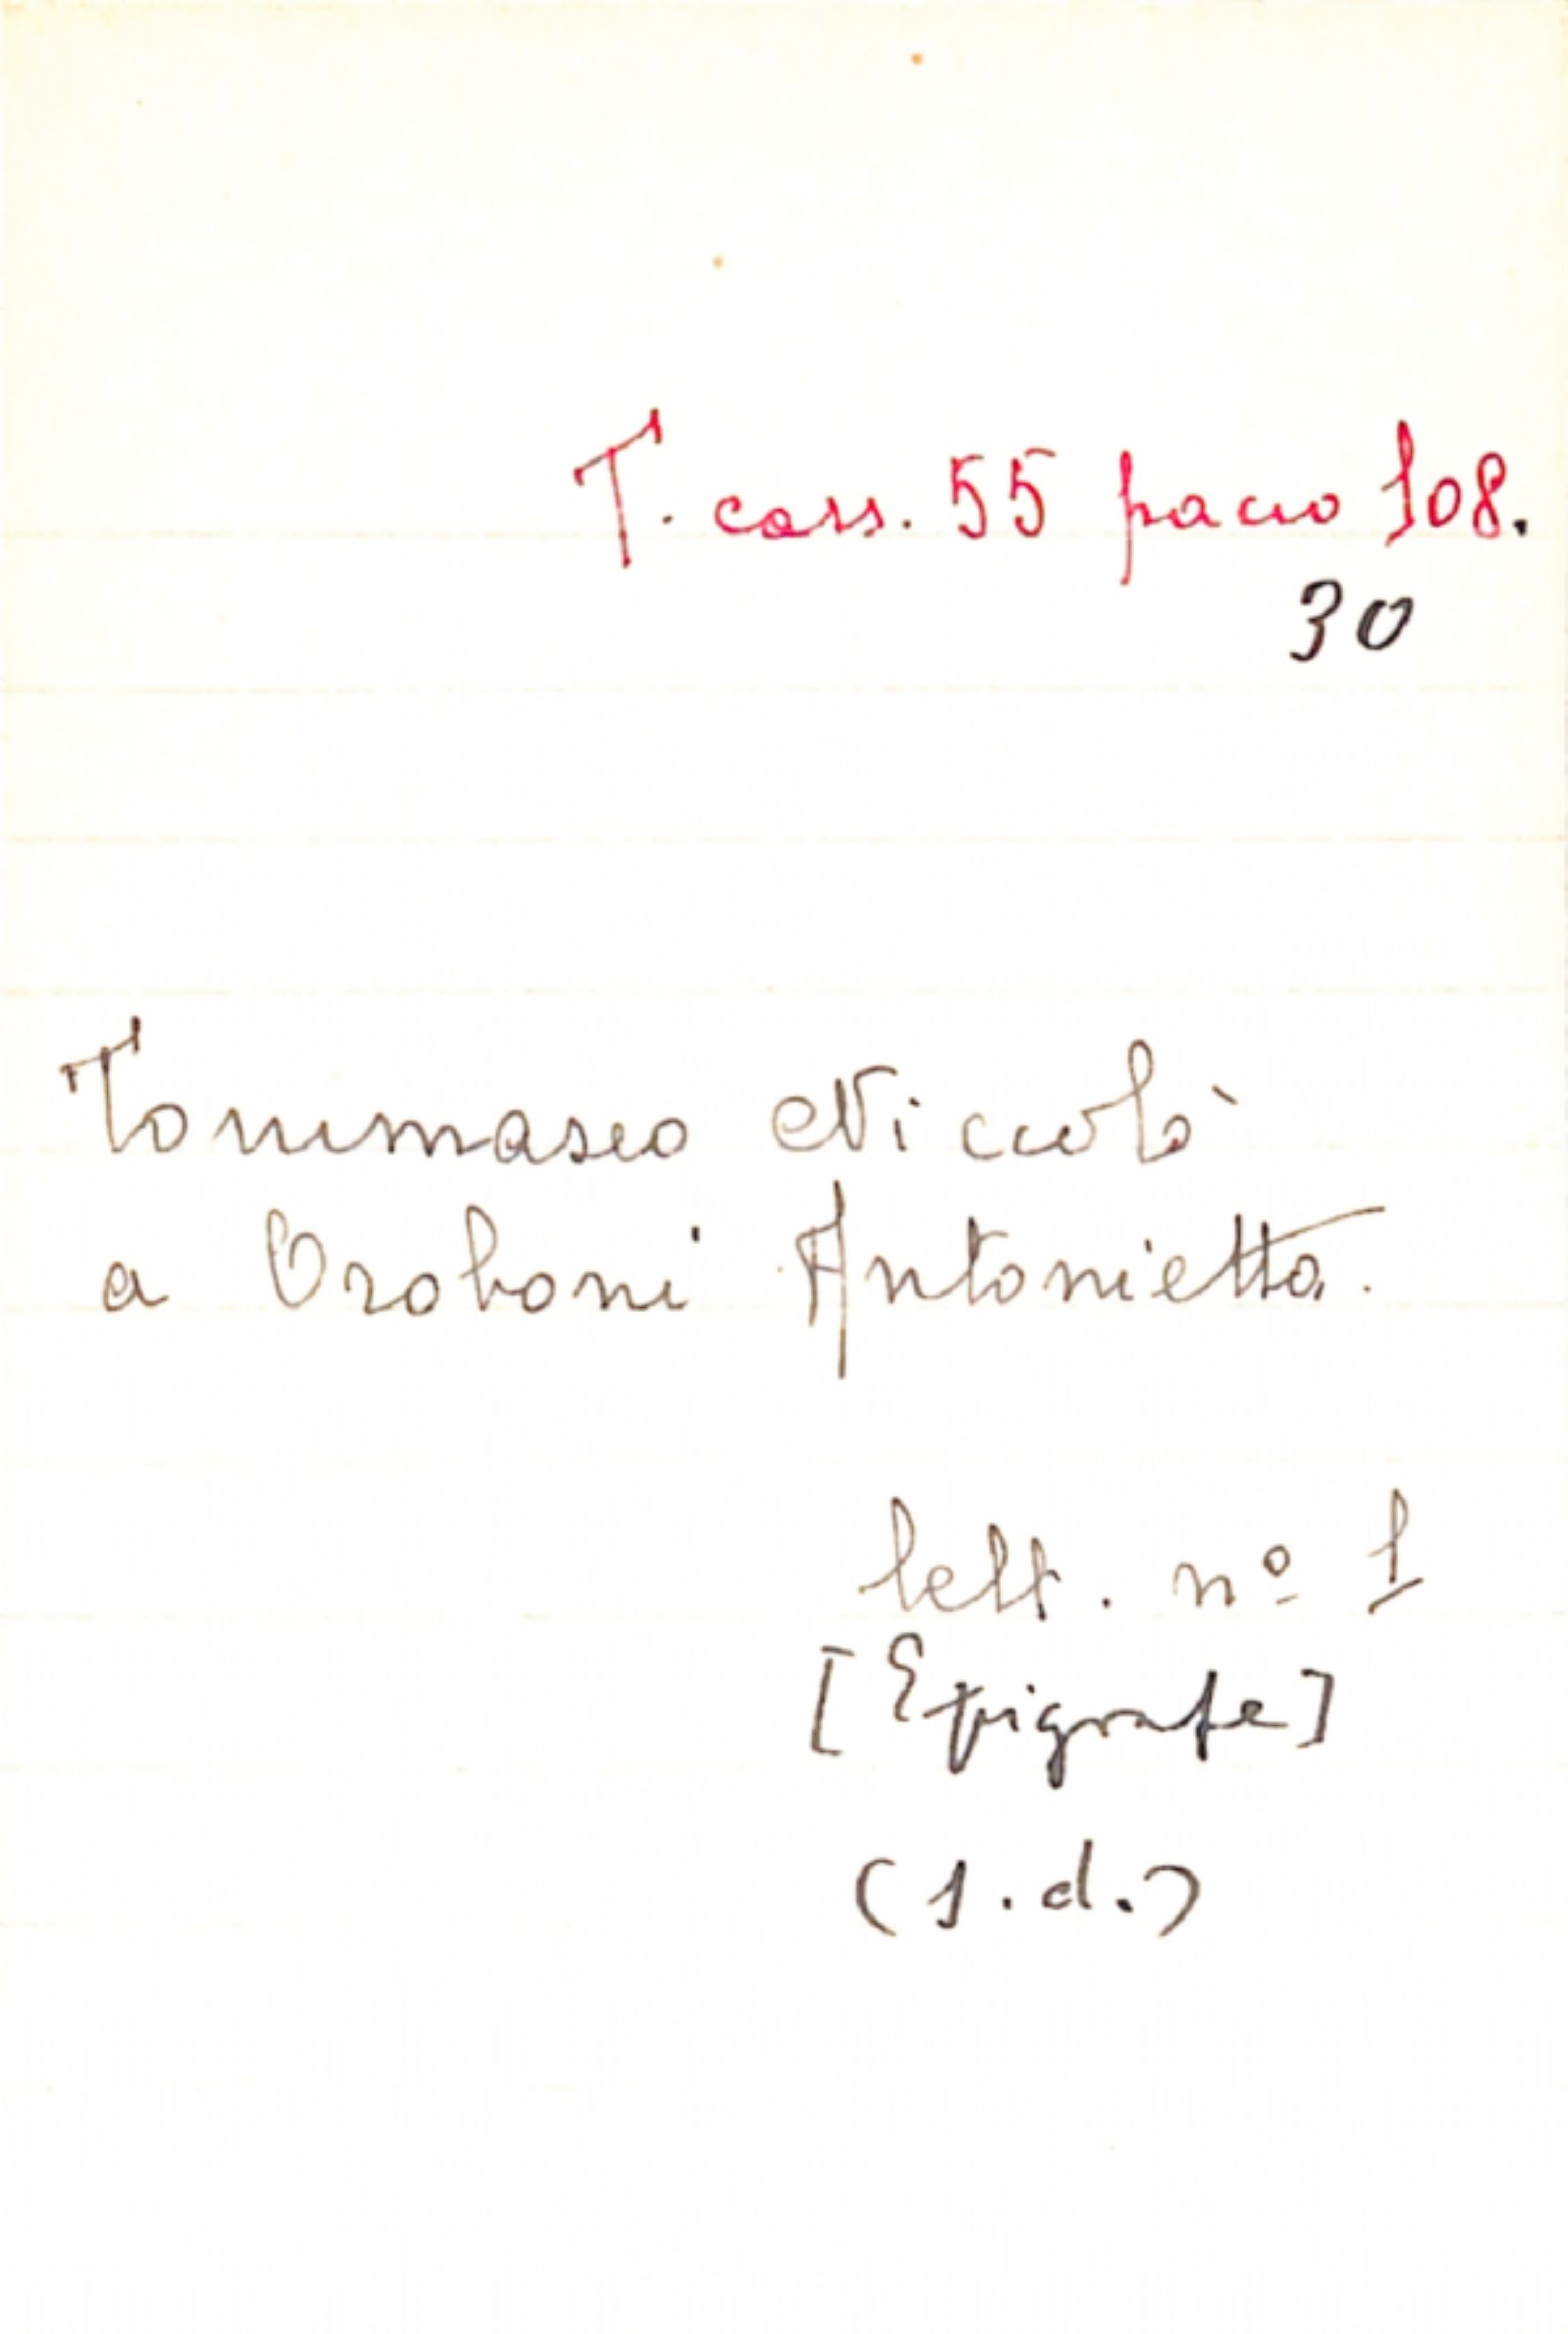 T. cass. 55 pacco 108.
30
Tommaseo Niccolò
a Oroboni Antonietta.
lett. nº 1
[Epigrafe]
(s.d.)